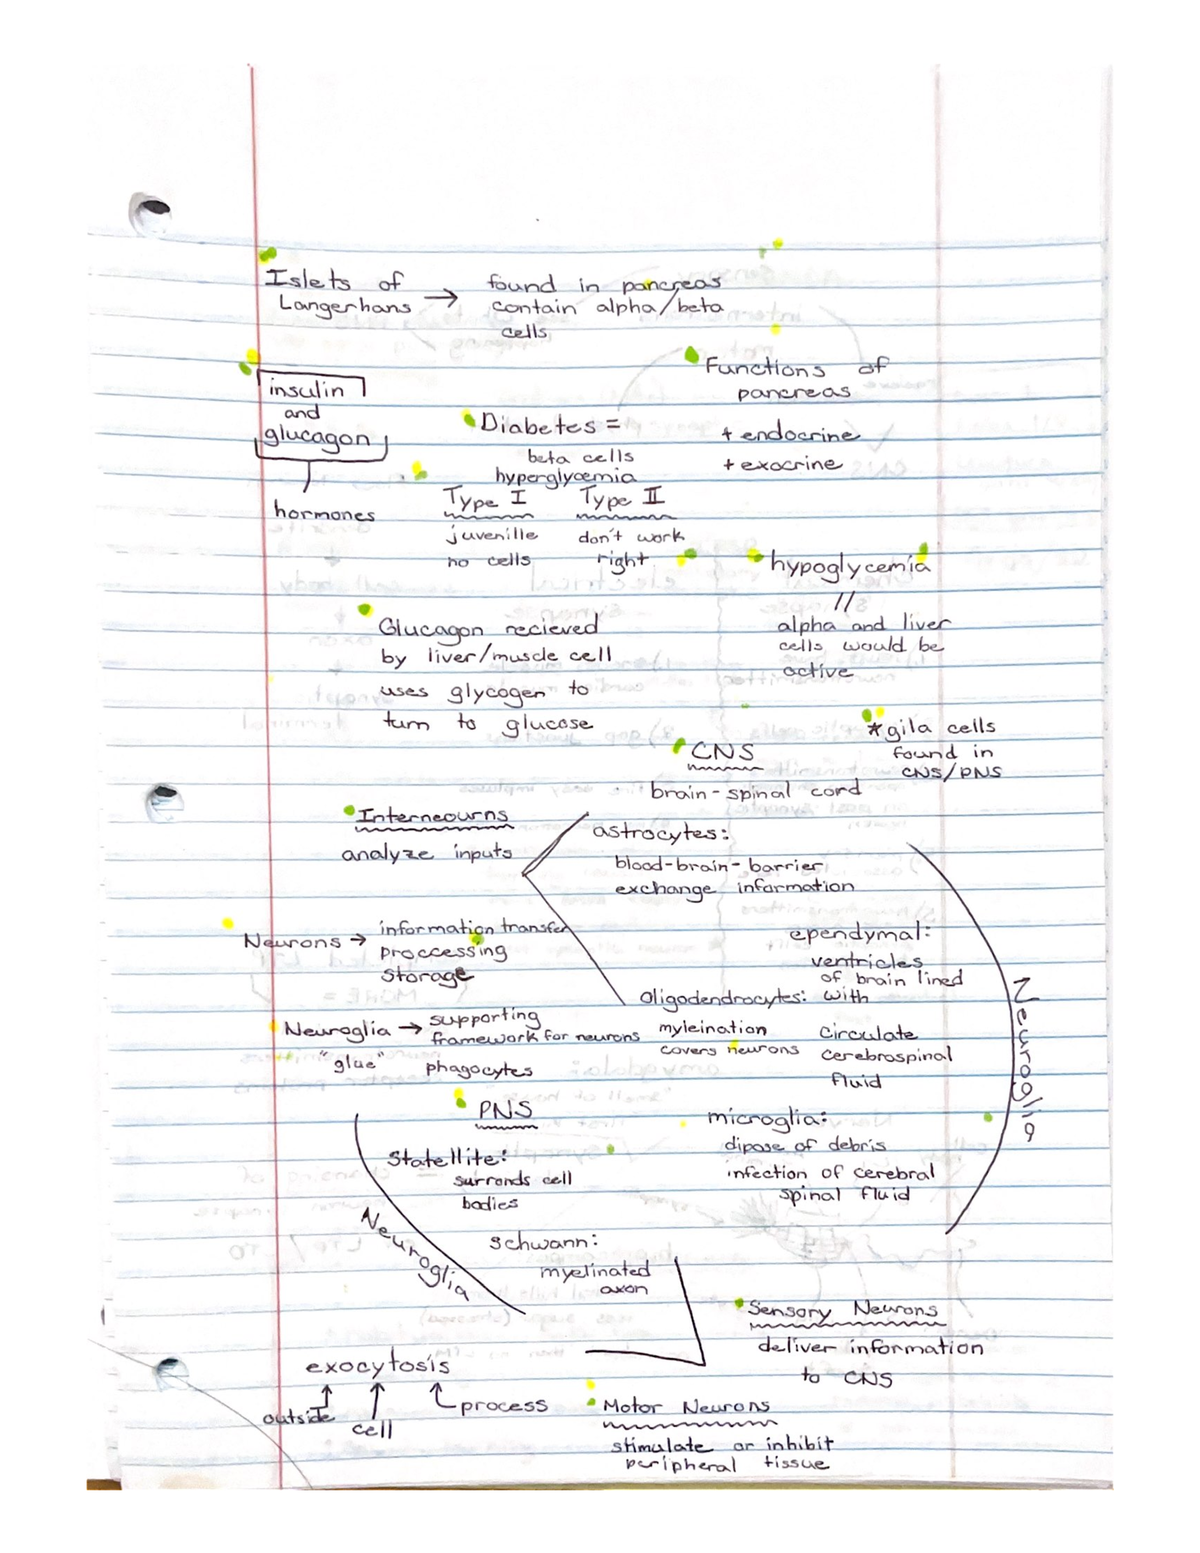 Islets of
Langerhans →
found in pancreas
contain alpha/beta
cells
insulin
and
glucagon
hormones
Functions of
pancreas
+ endocrine
+ exocrine
Diabetes =
beta cells
hyperglycemia
Type I
juvenille
no cells
Type II
don't work
right
hypoglycemia
//
alpha and liver
cells would be
active
Glucagon recieved
by liver/muscle cell
uses glycogen to
turn to glucose
*gila cells
found in
CNS/PNS
CNS
brain-spinal cord
Interneourns
analyze inputs
astrocytes:
blood-brain-barrier
exchange information
Neurons →
information transfer
proccessing
storage
ependymal:
ventricles
of brain lined
with
circulate
cerebrospinal
fluid
oligodendrocytes:
myleination
covers neurons
Neuroglia →
"glue"
supporting
framework for neurons
phagocytes
Neuroglia
PNS
microglia:
dipose of debris
infection of cerebral
spinal fluid
Statellite:
surronds cell
bodies
Neuroglia
schwann:
myelinated
axon
Sensory Neurons
deliver information
to CNS
exocytosis
outside
cell
process
Motor Neurons
stimulate or inhibit
peripheral tissue